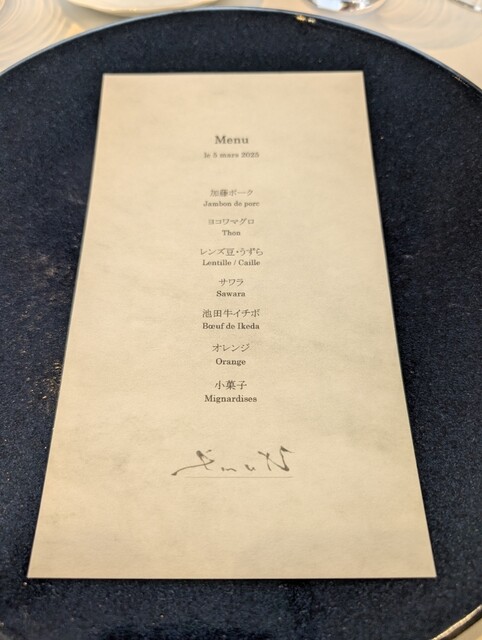 Menu
le 5 mars 2025
加藤ポーク
Jambon de porc
ヨコワマグロ
Thon
レンズ豆・うずら
Lentille / Caille
サワラ
Sawara
池田牛イチボ
Bœuf de Ikeda
オレンジ
Orange
小菓子
Mignardises